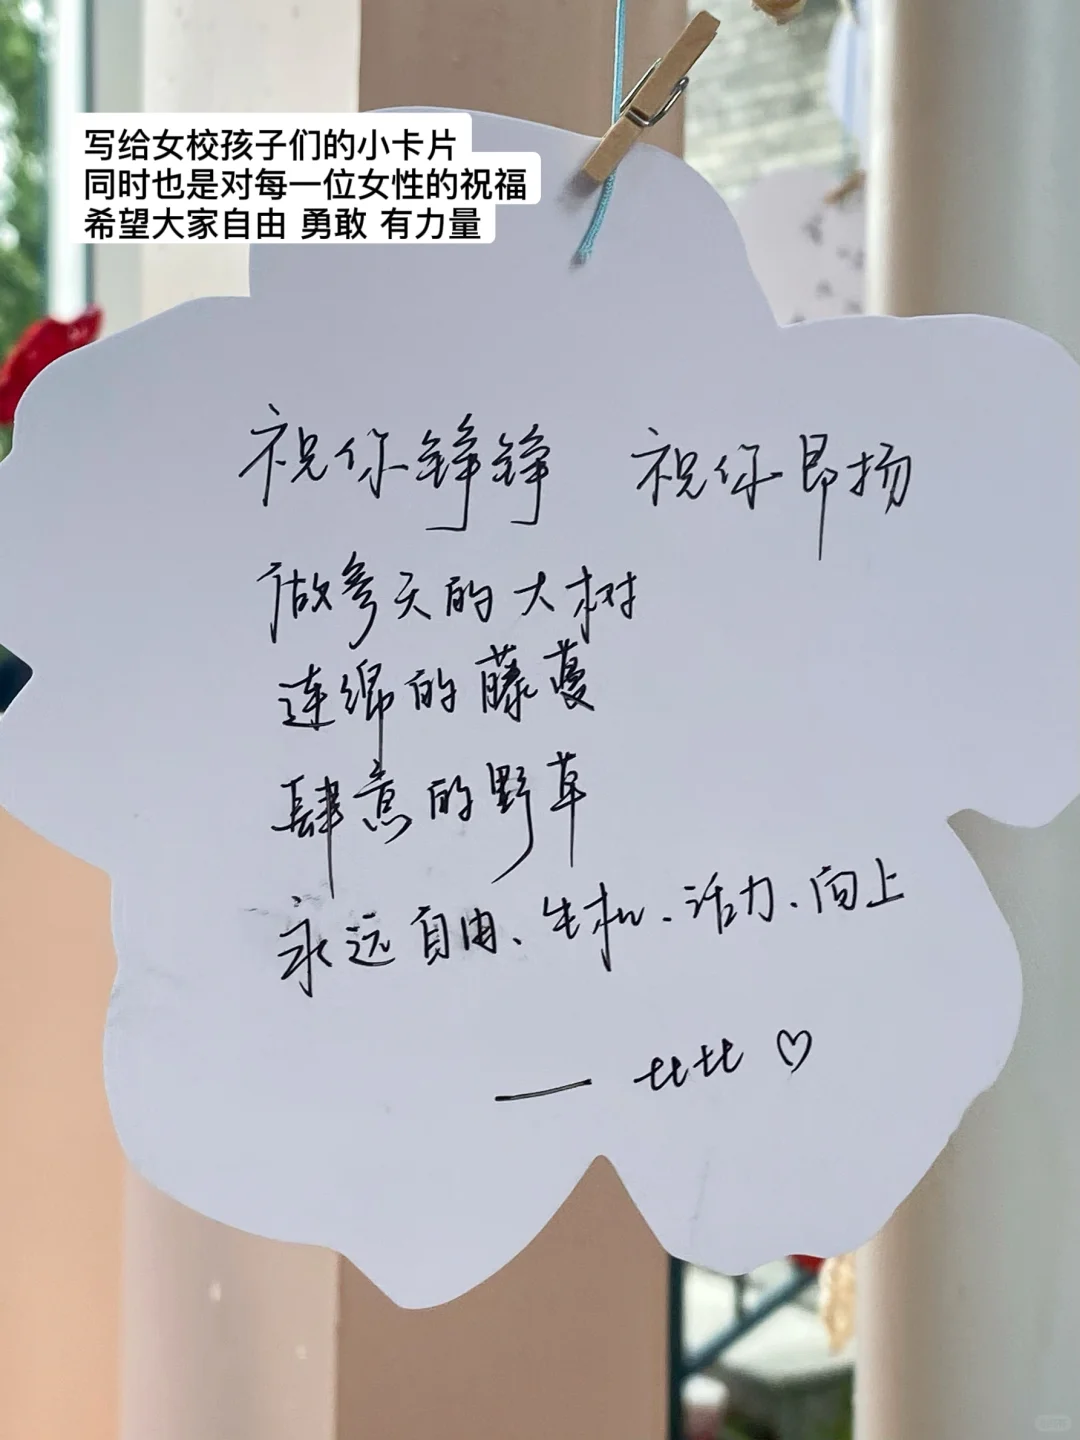 写给女校孩子们的小卡片
同时也是对每一位女性的祝福
希望大家自由 勇敢 有力量
祝你铮铮 祝你昂扬
做参天的大树
连绵的藤蔓
肆意的野草
永远自由、生机、活力、向上
—— 七七 ♡